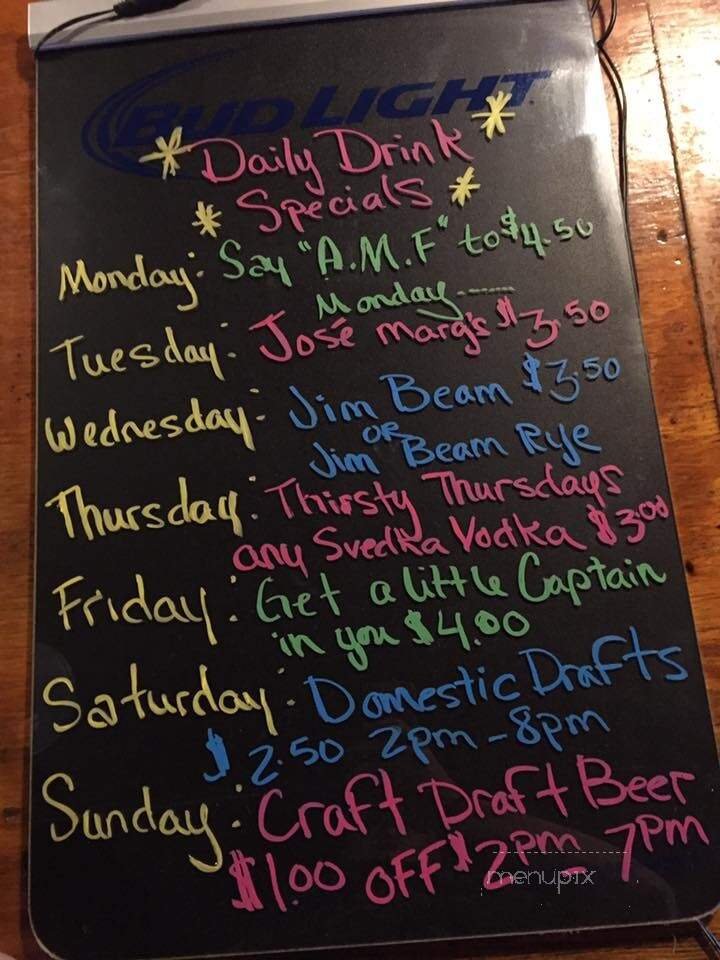 BUD LIGHT
* Daily Drink *
* Specials *
Monday: Say "A.M.F" to $4.50
Monday.......
Tuesday: José marg's $3.50
Wednesday: Jim Beam $3.50
OR
Jim Beam Rye
Thursday: Thirsty Thursdays
any Svedka Vodka $3.00
Friday: Get a little Captain
in you $4.00
Saturday: Domestic Drafts
$2.50 2pm-8pm
Sunday: Craft Draft Beer
$1.00 OFF 2pm-7pm
menupix